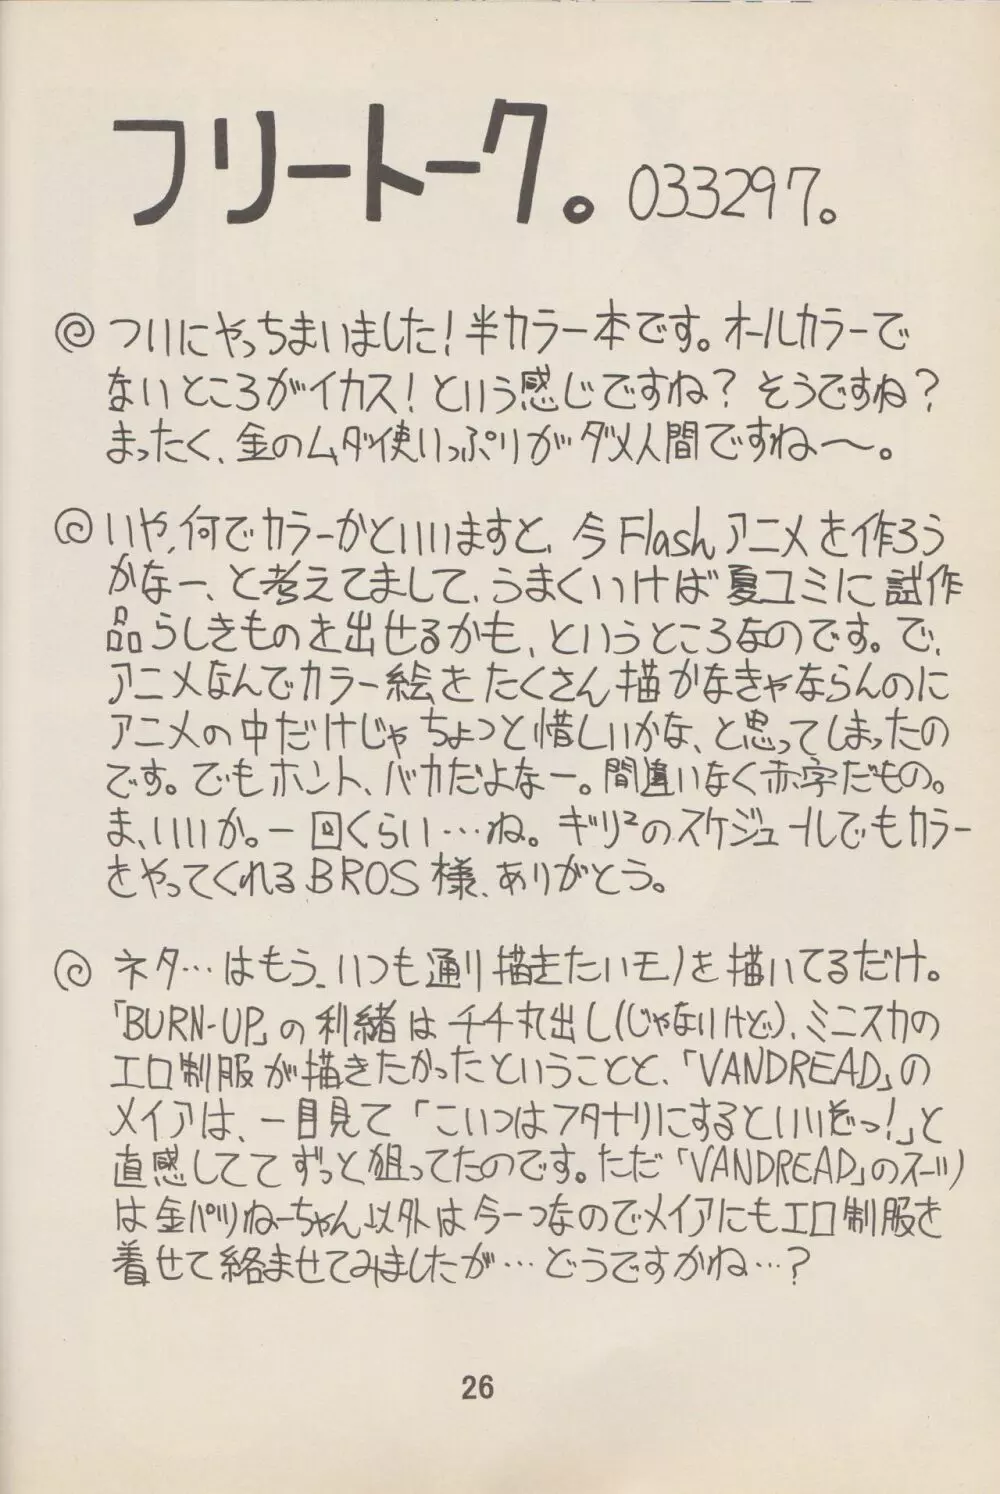 フリートーク。033297。
ついにやっちまいました!半カラー本です。オールカラーで
ないところがイカス!という感じですね?そうですね?
まったく、金のムダ使いっぷりがダメ人間ですね〜。
いや、何でカラーかといいますと、今Flashアニメを作ろう
かなー、と考えてまして、うまくいけば夏コミに試作
品らしきものを出せるかも、というところなのです。で、
アニメなんでカラー絵をたくさん描かなきゃならんのに
アニメの中だけじゃちょっと惜しいかな、と思ってしまったの
です。でもホント、バカだよなー。間違いなく赤字だもの。
ま、いいか。一回くらい…ね。ギリ²のスケジュールでもカラー
をやってくれるBROS様、ありがとう。
ネタ…はもう、いつも通り描きたいモノを描いてるだけ。
「BURN-UP」の利緒はチチ丸出し(じゃないけど)、ミニスカの
エロ制服が描きたかったということと、「VANDREAD」の
メイアは、一目見て「こいつはフタナリにするといいぞっ!」と
直感しててずっと狙ってたのです。ただ「VANDREAD」のスーツ
は金パツねーちゃん以外は今一つなのでメイアにもエロ制服を
着せて絡ませてみましたが…どうですかね…?
26